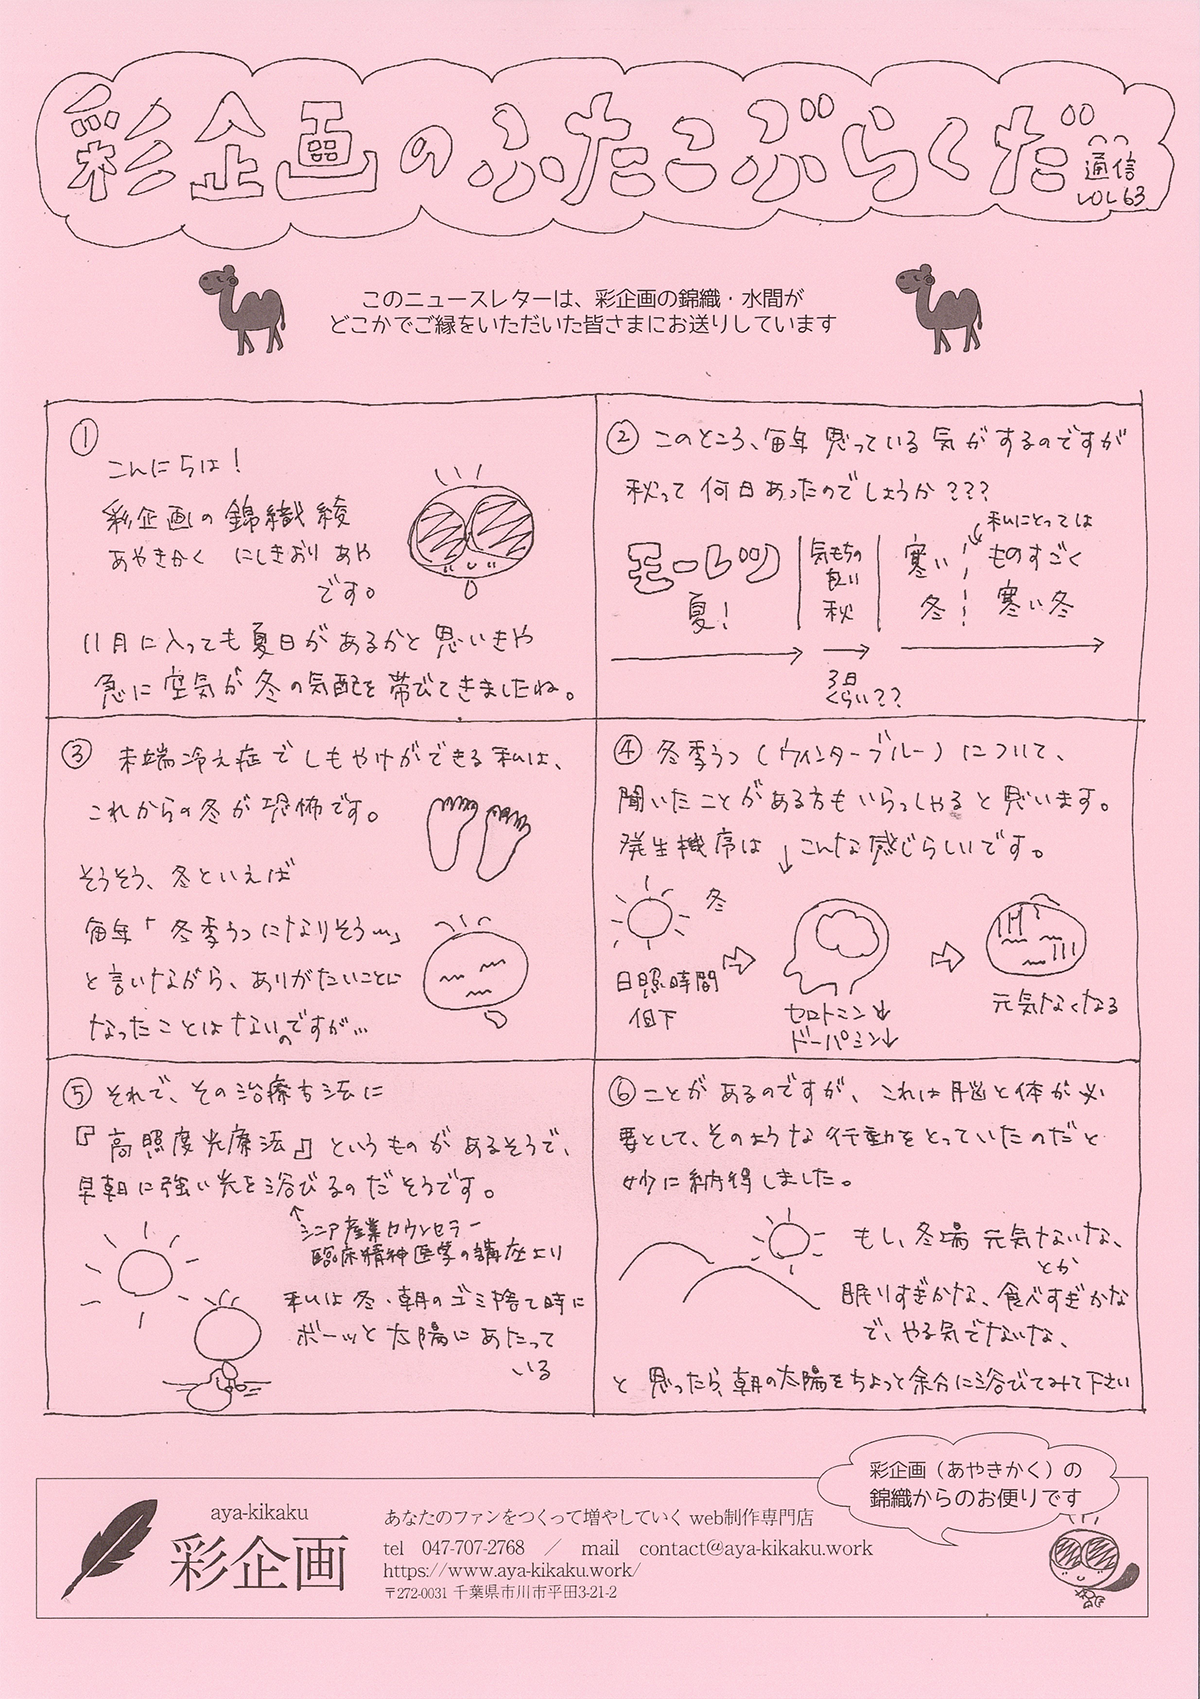 彩企画のふたこぶらくだ
通信
VOL 63
このニュースレターは、彩企画の錦織・水間が
どこかでご縁をいただいた皆さまにお送りしています
①
こんにちは！
彩企画の錦織綾
あやきかく にしきおり あや
です。
11月に入っても夏日があるかと思いきや
急に空気が冬の気配を帯びてきましたね。
② このところ、毎年思っている気がするのですが
秋って何日あったのでしょうか？？？
モーレツ
夏！
気もちの
良い
秋
寒い
冬
私にとっては
ものすごく
寒い冬
3日
くらい？？
③ 末端冷え症でしもやけができる私は、
これからの冬が恐怖です。
そうそう、冬といえば
毎年「冬季うつになりそう…」
と言いながら、ありがたいことに
なったことはないのですが…
④ 冬季うつ（ウィンターブルー）について、
聞いたことがある方もいらっしゃると思います。
発生機序は↓こんな感じらしいです。
冬
日照時間
低下
セロトニン↓
ドーパミン↓
元気なくなる
⑤ それで、その治療方法に
『高照度光療法』というものがあるそうで、
早朝に強い光を浴びるのだそうです。
↑シニア産業カウンセラー
臨床精神医学の講座より
私は冬・朝のゴミ捨て時に
ボーッと太陽にあたって
いる
⑥ ことがあるのですが、これは脳と体が必
要として、そのような行動をとっていたのだと
妙に納得しました。
もし、冬場 元気ないな、
とか
眠りすぎかな、食べすぎかな
で、やる気でないな、
と思ったら、朝の太陽をちょっと余分に浴びてみて下さい
彩企画（あやきかく）の
錦織からのお便りです
aya-kikaku
彩企画
あなたのファンをつくって増やしていく web制作専門店
tel 047-707-2768 ／ mail contact@aya-kikaku.work
https://www.aya-kikaku.work/
〒272-0031 千葉県市川市平田3-21-2